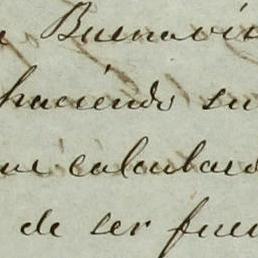 Buenavis
haciendo su
que calcular
de ser fue